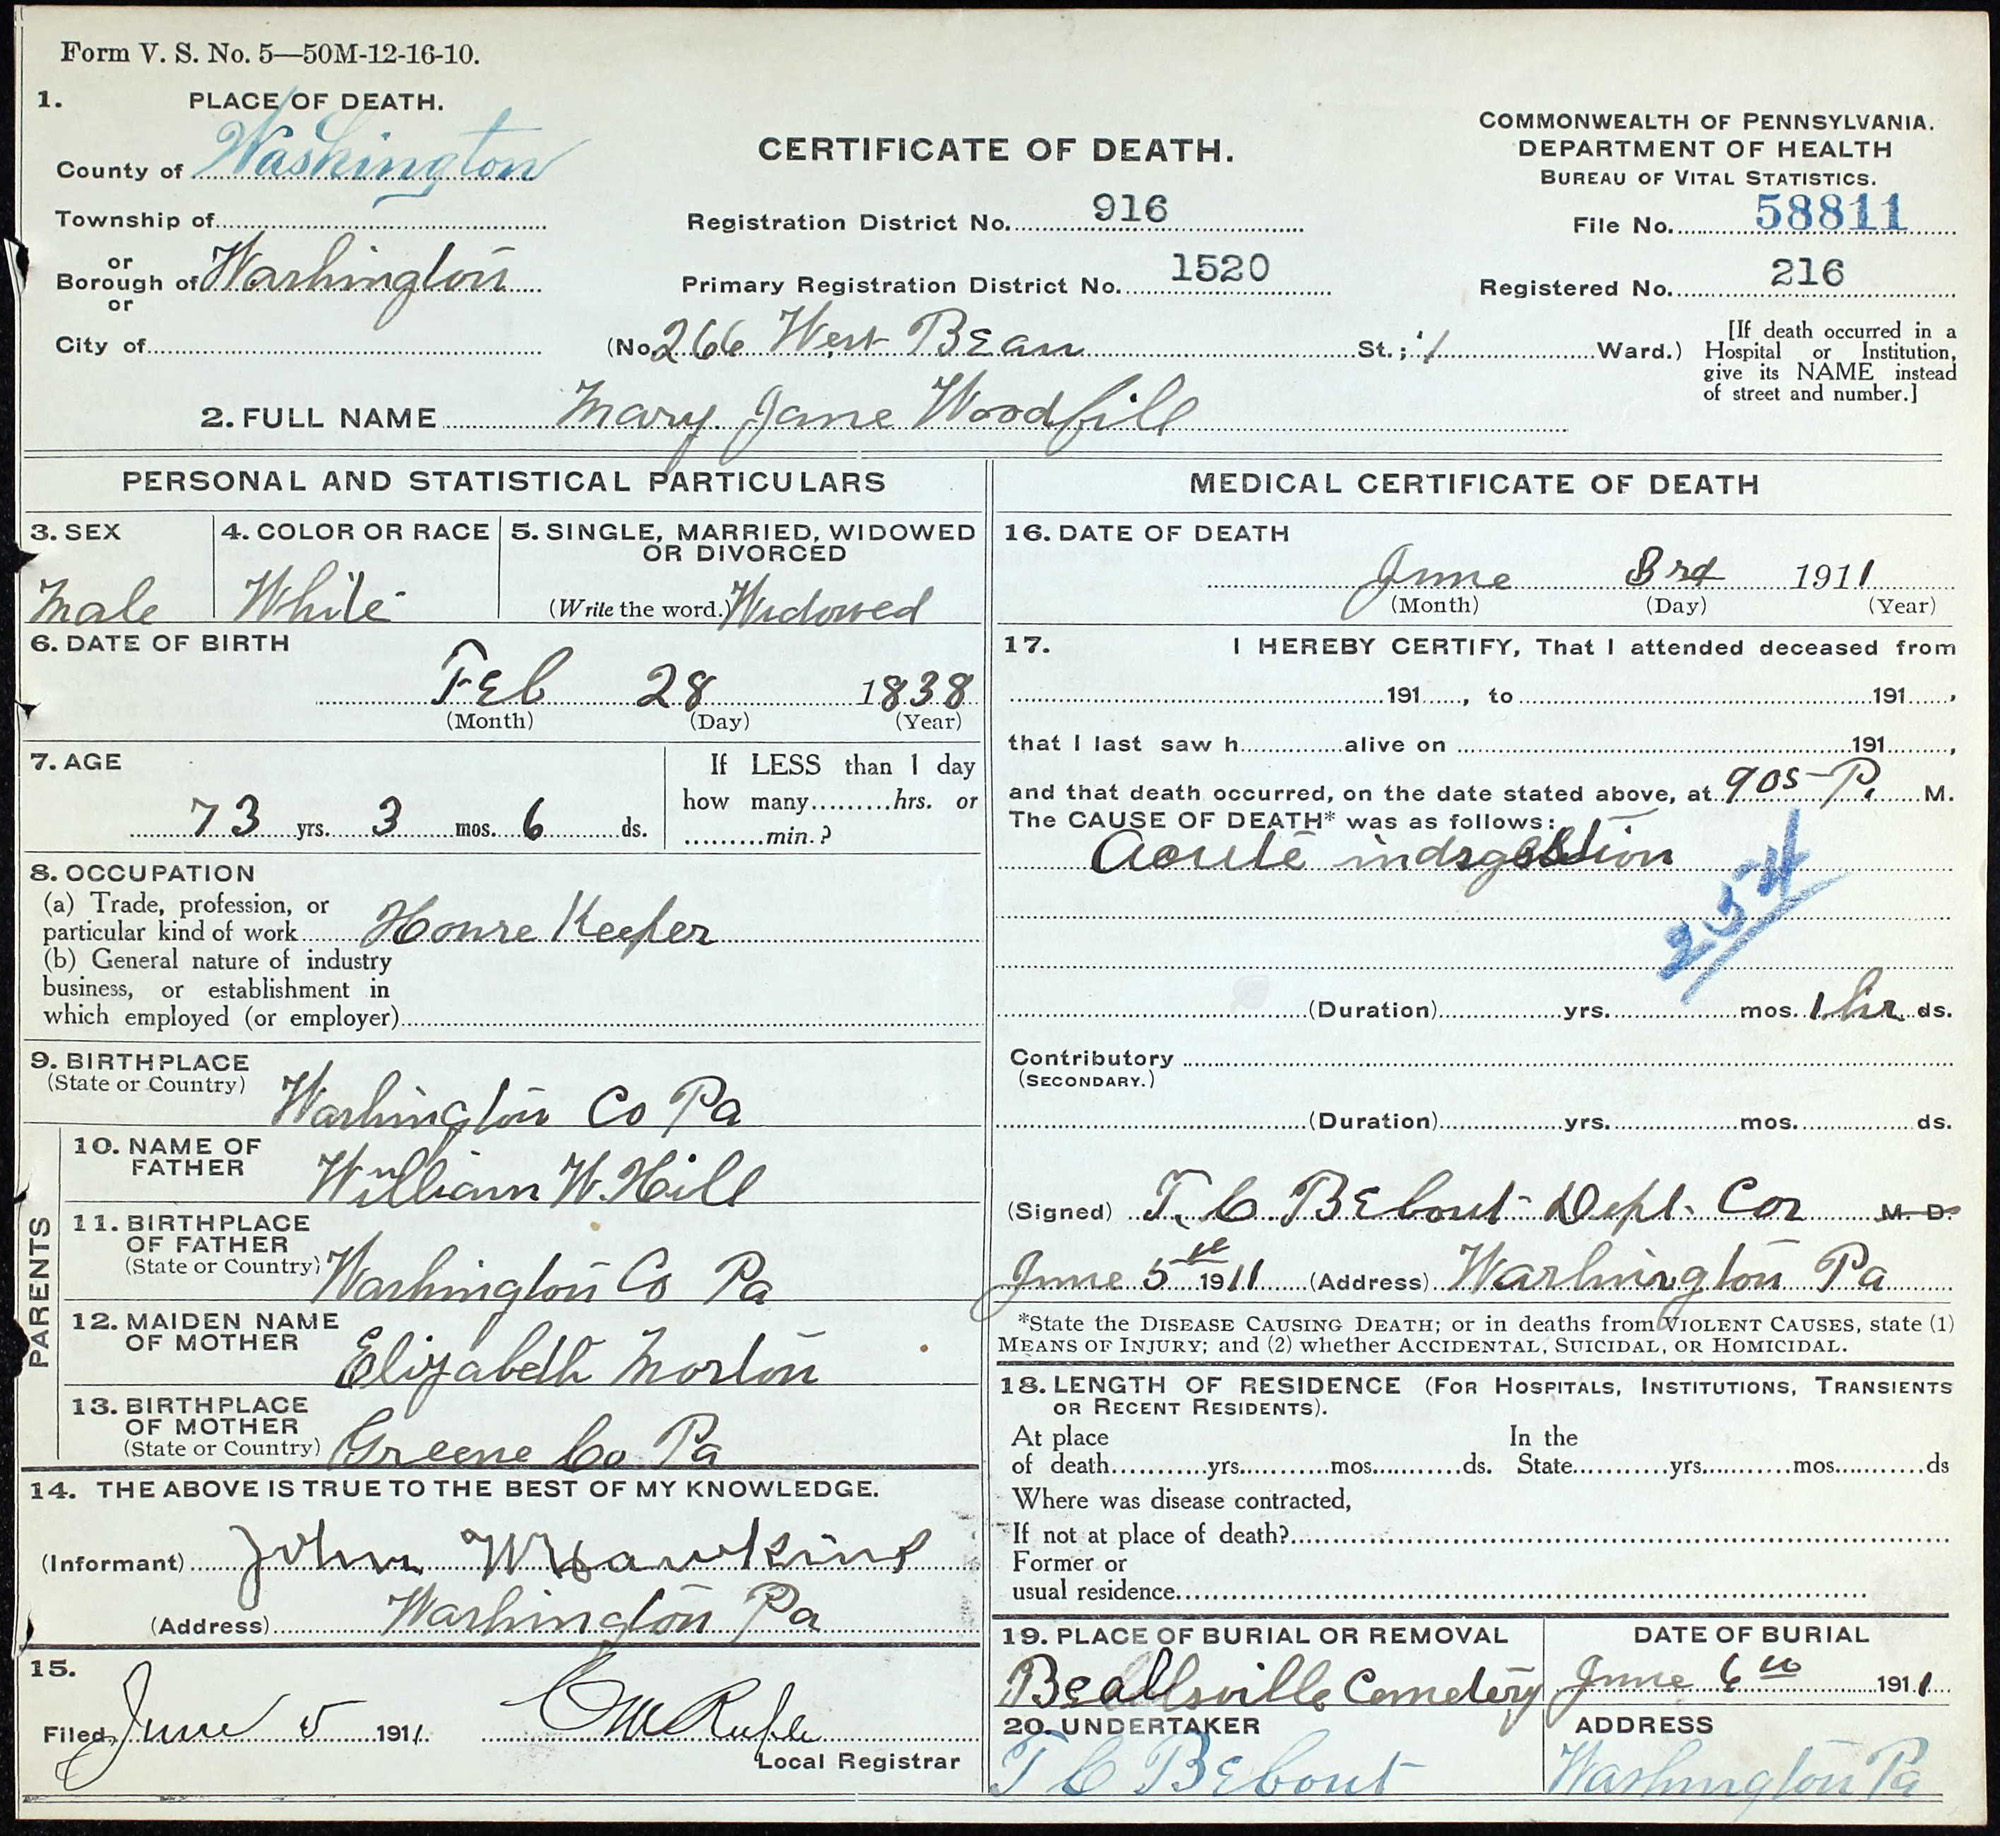 Form V. S. No. 5—50M-12-16-10.
1. PLACE OF DEATH.
County of Washington
Township of
or
Borough of Washington
or
City of
CERTIFICATE OF DEATH.
Registration District No. 916
Primary Registration District No. 1520
(No. 266 West Beau St.; 1 Ward.)
COMMONWEALTH OF PENNSYLVANIA.
DEPARTMENT OF HEALTH
BUREAU OF VITAL STATISTICS.
File No. 58811
Registered No. 216
[If death occurred in a
Hospital or Institution,
give its NAME instead
of street and number.]
2. FULL NAME Mary Jane Woodfill
PERSONAL AND STATISTICAL PARTICULARS
3. SEX
Male
4. COLOR OR RACE
White
5. SINGLE, MARRIED, WIDOWED
OR DIVORCED
(Write the word.) Widowed
6. DATE OF BIRTH
Feb 28 1838
(Month) (Day) (Year)
7. AGE
73 yrs. 3 mos. 6 ds.
If LESS than 1 day
how many hrs. or
min.?
8. OCCUPATION
(a) Trade, profession, or
particular kind of work House Keeper
(b) General nature of industry
business, or establishment in
which employed (or employer)
9. BIRTHPLACE
(State or Country)
Washington Co Pa
PARENTS
10. NAME OF
FATHER
William W. Hill
11. BIRTHPLACE
OF FATHER
(State or Country)
Washington Co Pa
12. MAIDEN NAME
OF MOTHER
Elizabeth Morton
13. BIRTHPLACE
OF MOTHER
(State or Country) Greene Co Pa
14. THE ABOVE IS TRUE TO THE BEST OF MY KNOWLEDGE.
(Informant) John W Hawkins
(Address) Washington Pa
15.
Filed June 5 1911 C M Ruple
Local Registrar
MEDICAL CERTIFICATE OF DEATH
16. DATE OF DEATH
June 3rd 1911
(Month) (Day) (Year)
17. I HEREBY CERTIFY, That I attended deceased from
191 , to 191 ,
that I last saw h alive on 191 ,
and that death occurred, on the date stated above, at 905 P. M.
The CAUSE OF DEATH* was as follows:
Acute indigestion
(Duration) yrs. mos. 1 hr ds.
Contributory
(SECONDARY.)
(Duration) yrs. mos. ds.
(Signed) T. C. Bebout Dept. Cor M. D.
June 5th 1911 (Address) Washington Pa
*State the DISEASE CAUSING DEATH; or in deaths from VIOLENT CAUSES, state (1)
MEANS OF INJURY; and (2) whether ACCIDENTAL, SUICIDAL, OR HOMICIDAL.
18. LENGTH OF RESIDENCE (FOR HOSPITALS, INSTITUTIONS, TRANSIENTS
OR RECENT RESIDENTS).
At place
of death yrs. mos. ds.
In the
State yrs. mos. ds
Where was disease contracted,
If not at place of death?
Former or
usual residence
19. PLACE OF BURIAL OR REMOVAL
Beallsville Cemetery
DATE OF BURIAL
June 6th 1911
20. UNDERTAKER
T C Bebout
ADDRESS
Washington Pa